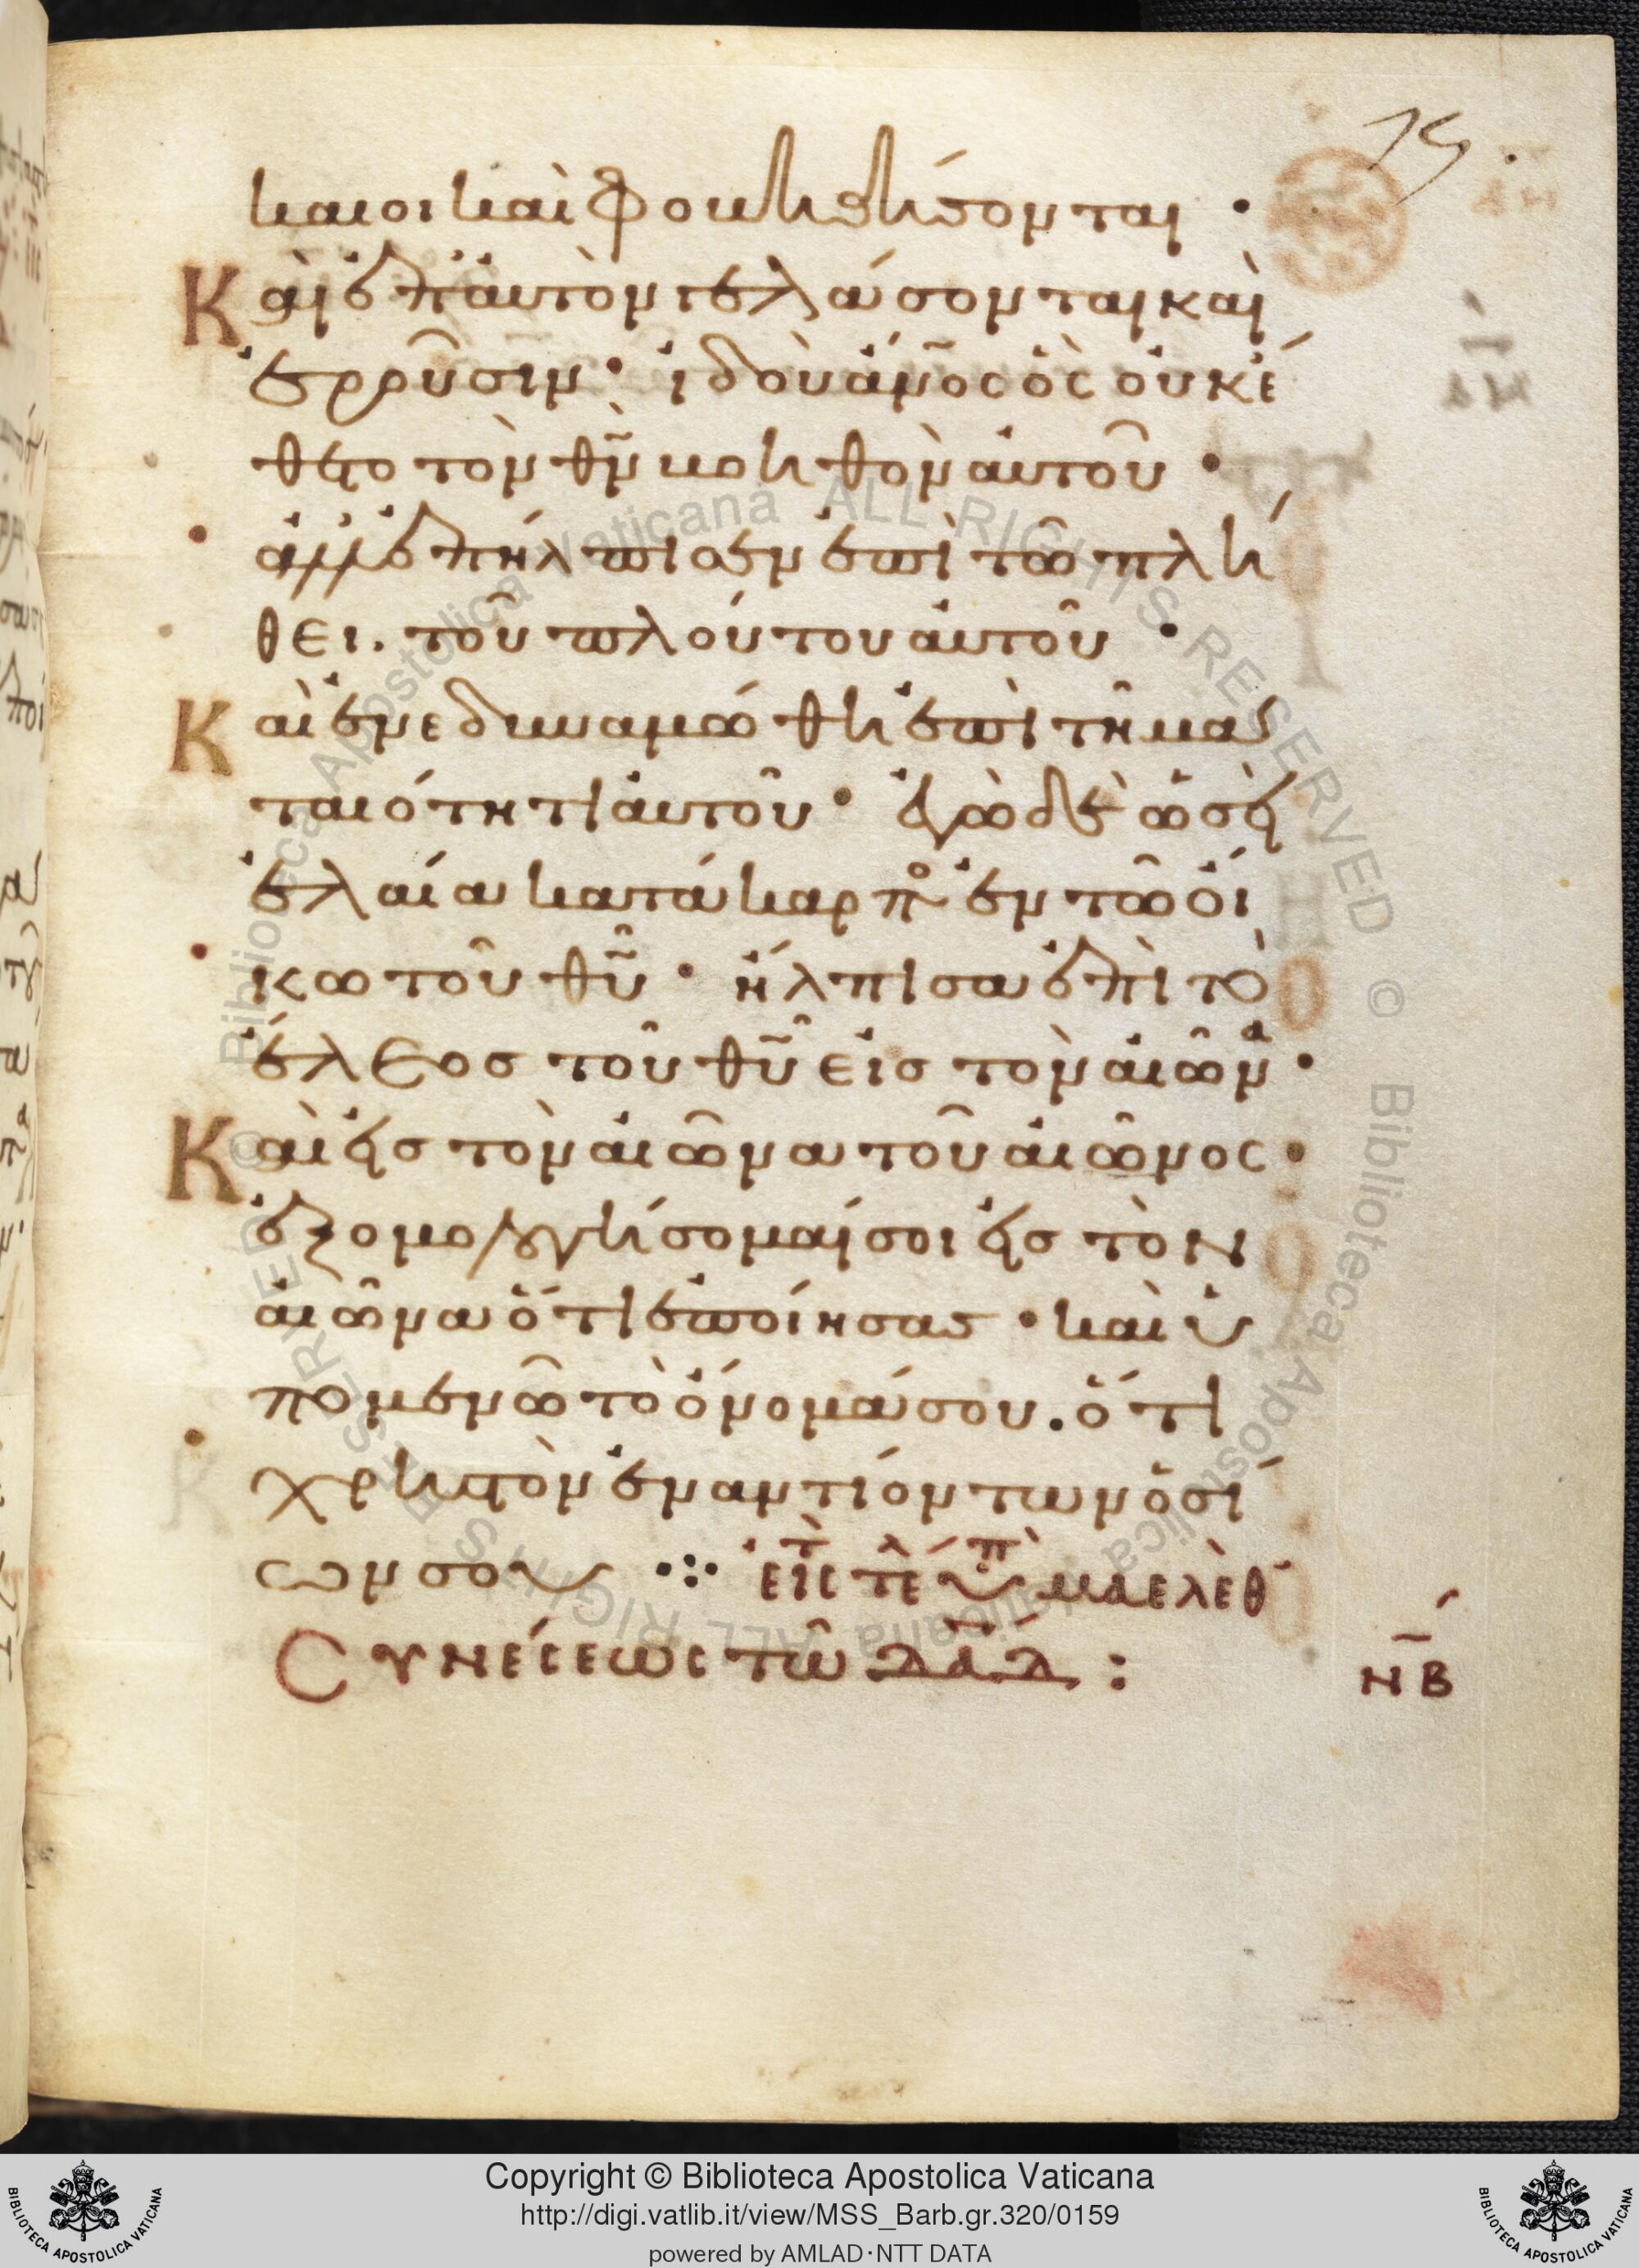 καιοι καὶ φοβηθήσονται ·
Καὶ ἐπ' αὐτὸν γελάσονται καὶ
ἐροῦσιν · ἰδοὺ ἄν̅ος ὃς οὐκ ἔ
θετο τὸν θ̅ν̅ βοηθὸν αὐτοῦ ·
ἀλλ' ἐπήλπισεν ἐπὶ τῶ πλή
θει . τοῦ πλούτου αὐτοῦ ·
Καὶ ἐνεδυναμώθη ἐπὶ τῆ μα
ταιότητι αὐτοῦ · ἐγὼ δὲ ὡσεὶ
ἐλαία κατάκαρπο ἐν τῶ οἴ
κω τοῦ θ̅υ̅ · ἤλπισα ἐπὶ τὸ
ἔλεος τοῦ θ̅υ̅ εἰς τὸν αἰῶνα ·
Καὶ εἰς τὸν αἰῶνα τοῦ αἰῶνος ·
ἐξομολογήσομαί σοι εἰς τὸν
αἰῶνα ὅτι ἐποίησας · καὶ ὑ
πομενῶ τὸ ὄνομά σου . ὅτι
χρηστὸν ἐναντίον τῶν ὁσί
ων σου ·:· εἰς τ τέλ ὑπ μαελὲθ
Συνέσεως τῶ δα̅δ :
Ν̅Β
Copyright © Biblioteca Apostolica Vaticana
http://digi.vatlib.it/view/MSS_Barb.gr.320/0159
powered by AMLAD·NTT DATA
BIBLIOTECA APOSTOLICA VATICANA
BIBLIOTECA APOSTOLICA VATICANA